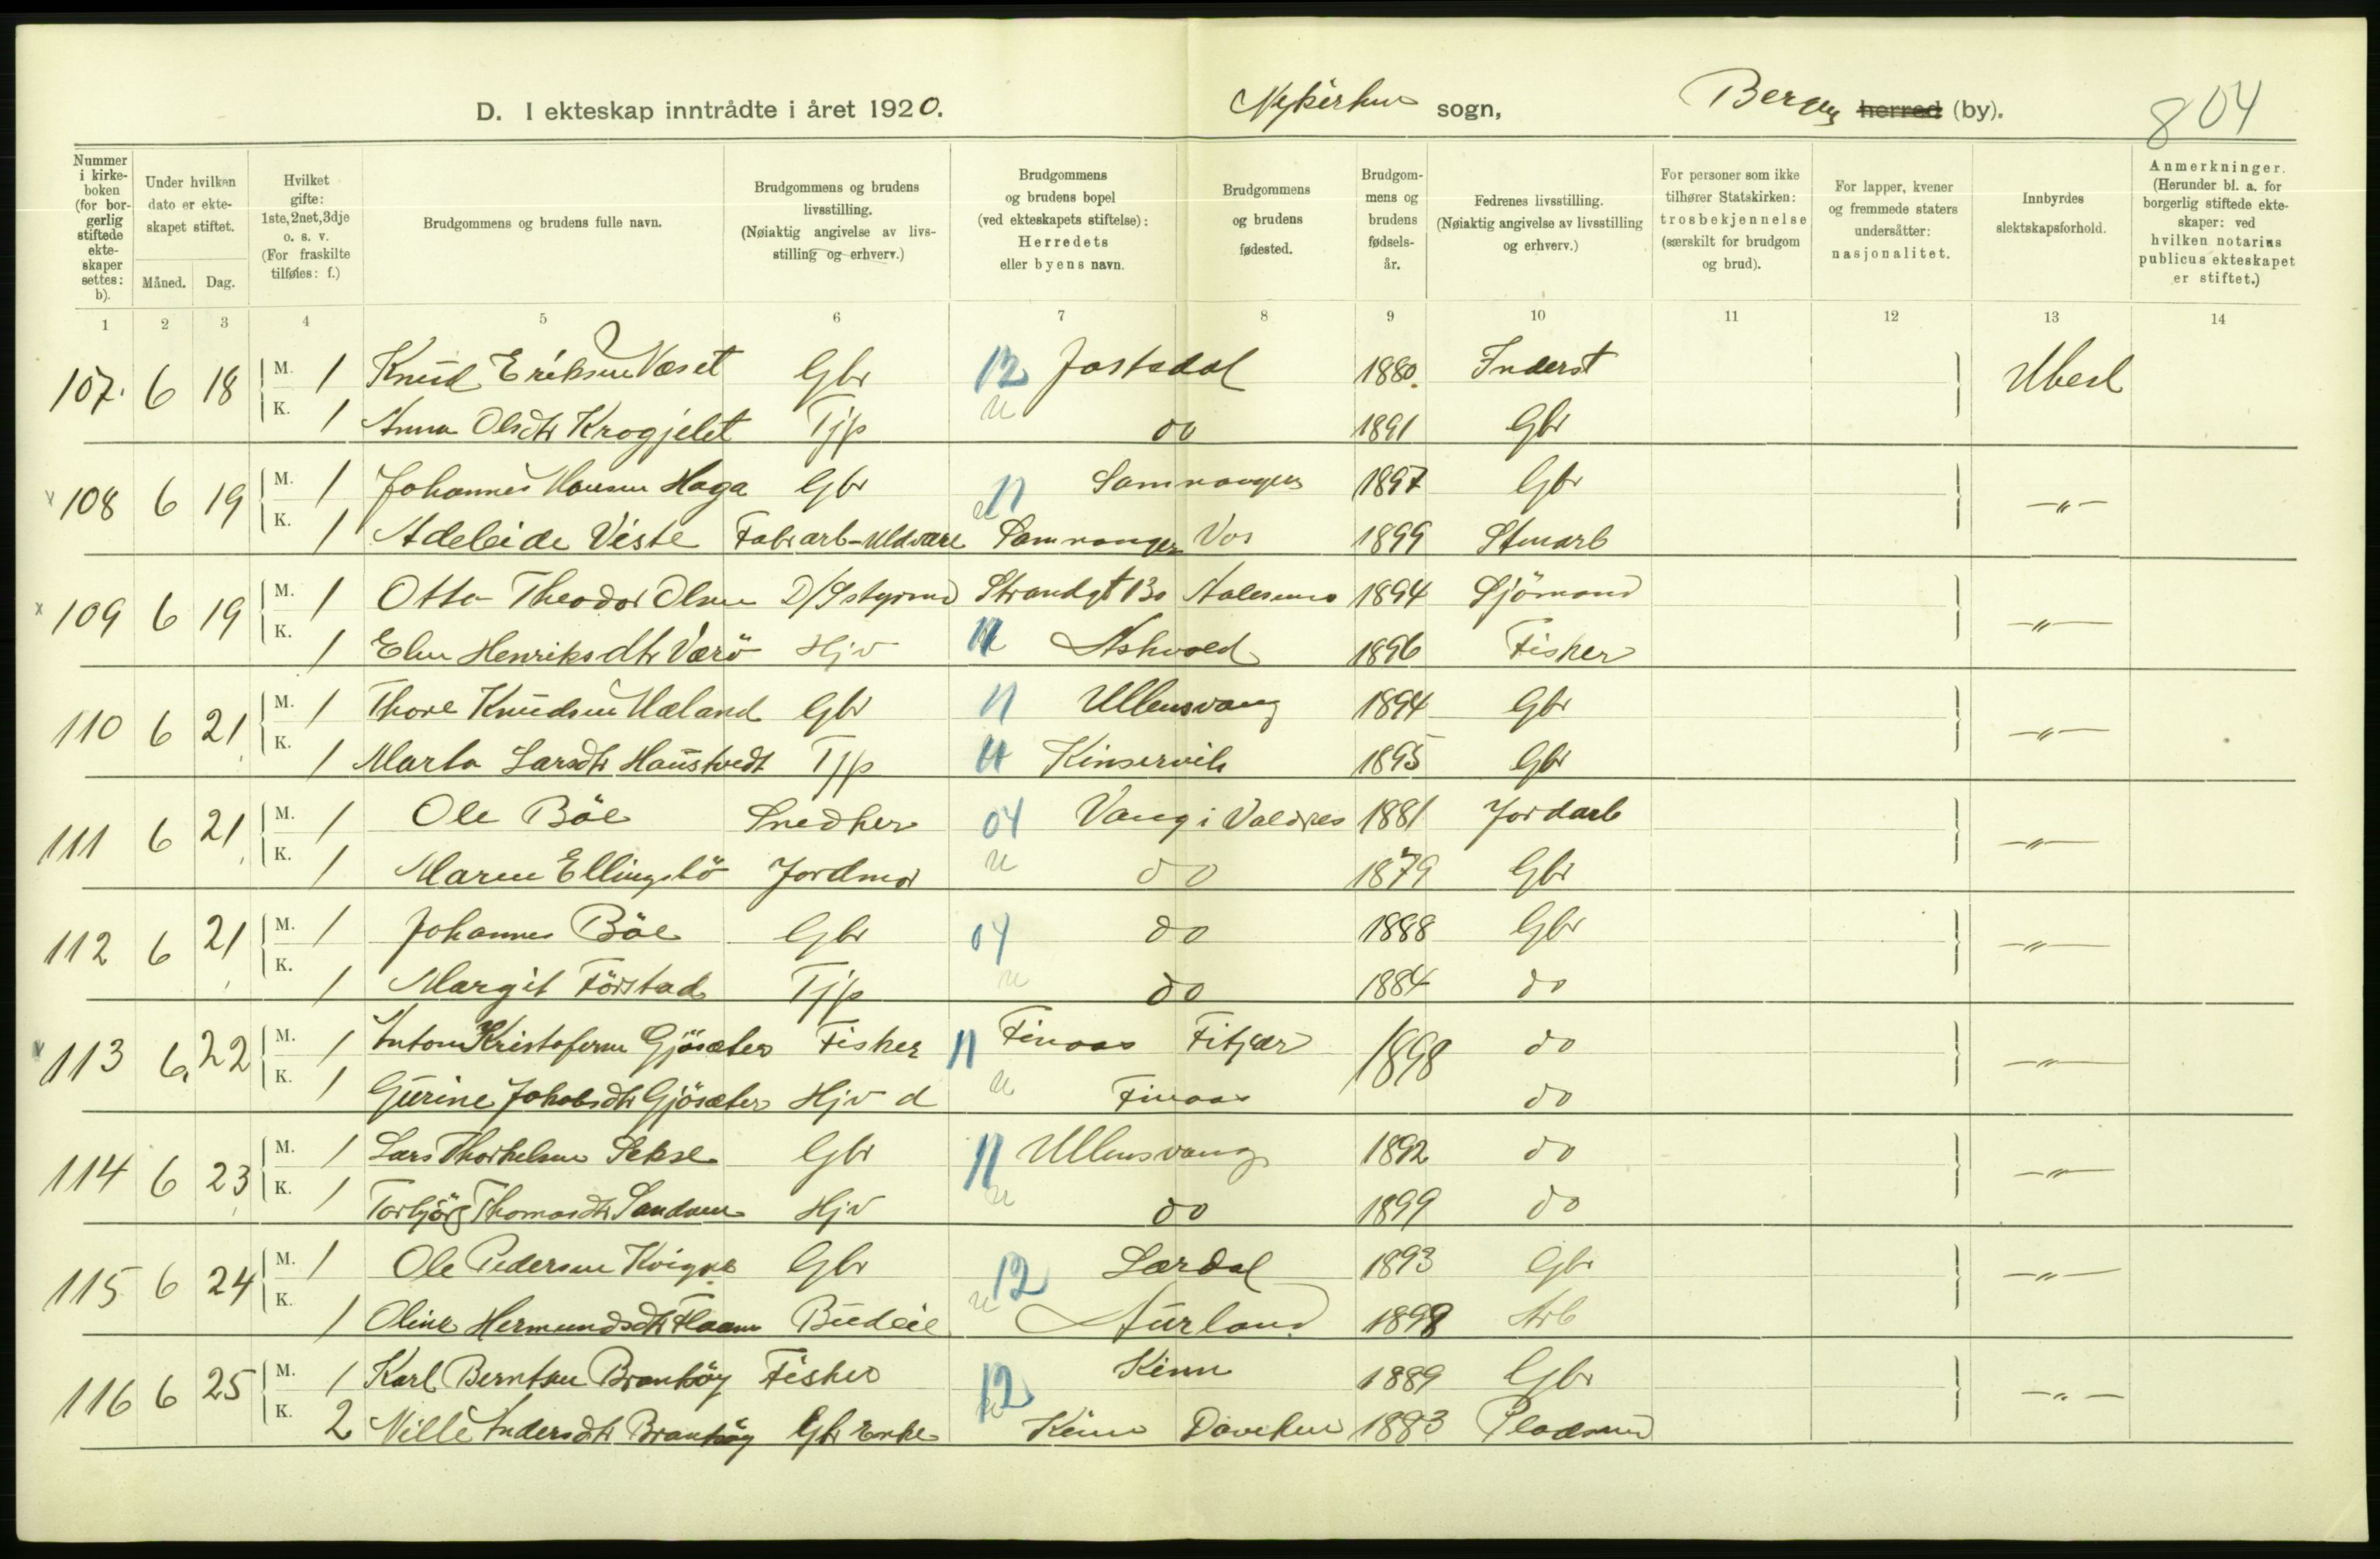 D. I ekteskap inntrådte i året 1920. Nykirkens sogn, Bergen herred (by). 804
Nummer i kirkeboken (for borgerlig stiftede ekteskaper settes: b).
Under hvilken dato er ekteskapet stiftet.
Måned. Dag.
Hvilket gifte: 1ste, 2net, 3dje o. s. v. (For fraskilte tilføies: f.)
Brudgommens og brudens fulle navn.
Brudgommens og brudens livsstilling. (Nøiaktig angivelse av livsstilling og erhverv.)
Brudgommens og brudens bopel (ved ekteskapets stiftelse): Herredets eller byens navn.
Brudgommens og brudens fødested.
Brudgommens og brudens fødselsår.
Fedrenes livsstilling. (Nøiaktig angivelse av livsstilling og erhverv.)
For personer som ikke tilhører Statskirken: trosbekjennelse (særskilt for brudgom og brud).
For lapper, kvener og fremmede staters undersåtter: nasjonalitet.
Innbyrdes slektskapsforhold.
Anmerkninger. (Herunder bl. a. for borgerlig stiftede ekteskaper: ved hvilken notarius publicus ekteskapet er stiftet.)
1 2 3 4 5 6 7 8 9 10 11 12 13 14
107. 6 18 M. 1 Knud Eriksen Væset Gbr 12 Jostedal 1880 Inderst Ubesl
K. 1 Anna Olsdtr Krogjelet Tjp do 1891 Gbr
108 6 19 M. 1 Johannes Hansen Haga Gbr 11 Samnanger 1897 Gbr -"-
K. 1 Adeleide Viste Fabrarb-Uldvare Samnanger Vos 1899 Stenarb
109 6 19 M. 1 Otto Theodor Olsen D/Sstyrmd Strandgt 130 Aalesund 1894 Sjömand -"-
K. 1 Elen Henriksdtr Værö Hjv 11 Askvoll 1896 Fisker
110 6 21 M. 1 Thore Knudsen Hæland Gbr 11 Ullensvang 1894 Gbr -"-
K. 1 Marta Larsdtr Haustvedt Tjp 11 Kinservik 1895 Gbr
111 6 21 M. 1 Ole Böe Snedker 04 Vang i Valdres 1881 Jordarb -"-
K. 1 Maren Ellingsbö Jordmor do 1879 Gbr
112 6 21 M. 1 Johannes Böe Gbr 04 do 1888 Gbr -"-
K. 1 Margit Förstad Tjp do 1884 do
113 6 22 M. 1 Anton Kristofersen Gjösæter Fisker 11 Finaas Fitjar 1898 do -"-
K. 1 Gurine Jakobsdtr Gjösæter Hjv d Finaas do
114 6 23 M. 1 Lars Thorkelsen Sekse Gbr 11 Ullensvang 1892 do -"-
K. 1 Torbjörg Thomasdtr Sandven Hjv do 1899 do
115 6 24 M. 1 Ole Pedersen Kvigne Gbr 12 Lærdal 1893 Gbr -"-
K. 1 Oline Hermundsdtr Flaam Budeie Aurland 1898 Arb
116 6 25 M. 1 Karl Berntsen Branhöy Fisker 12 Kinn 1889 Gbr -"-
K. 2 Nille Andersdtr Branhöy Gbr Enke Kinn Daviken 1883 Pladsmd